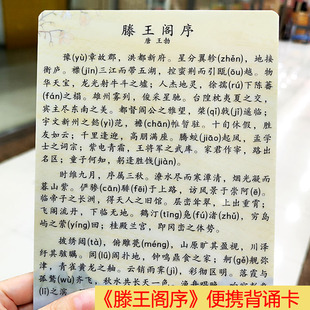 滕王阁序
唐 王勃
豫(yù)章故郡，洪都新府。星分翼轸(zhěn)，地接
衡庐。襟(jīn)三江而带五湖，控蛮荆而引瓯(ōu)越。物
华天宝，龙光射牛斗之墟；人杰地灵，徐孺(rú)下陈蕃
(fān)之榻。雄州雾列，俊采星驰。台隍枕夷夏之交，
宾主尽东南之美。都督阎公之雅望，棨(qǐ)戟(jǐ)遥临；
宇文新州之懿(yì)范，襜(chān)帷暂驻。十旬休假，胜
友如云；千里逢迎，高朋满座。腾蛟(jiāo)起凤，孟学
士之词宗；紫电青霜，王将军之武库。家君作宰，路出
名区；童子何知，躬逢胜饯(jiàn)。
时维九月，序属三秋。潦水尽而寒潭清，烟光凝而
暮山紫。俨骖(cān)騑(fēi)于上路，访风景于崇阿(ē)。
临帝子之长洲，得天人之旧馆。层峦耸翠，上出重霄；
飞阁流丹，下临无地。鹤汀(tīng)凫(fú)渚(zhǔ)，穷岛
屿之萦(yíng)回；桂殿兰宫，即冈峦之体势。
披绣闼(tà)，俯雕甍(méng)，山原旷其盈视，川泽
纡其骇瞩。闾(lǘ)阎扑地，钟鸣鼎食之家；舸(gě)舰弥
津，青雀黄龙之舳。云销雨霁(jì)，彩彻区明。落霞与
孤鹜(wù)齐飞，秋水共长天一色。渔舟唱晚，
(lǐ)之滨
《滕王阁序》便携背诵卡